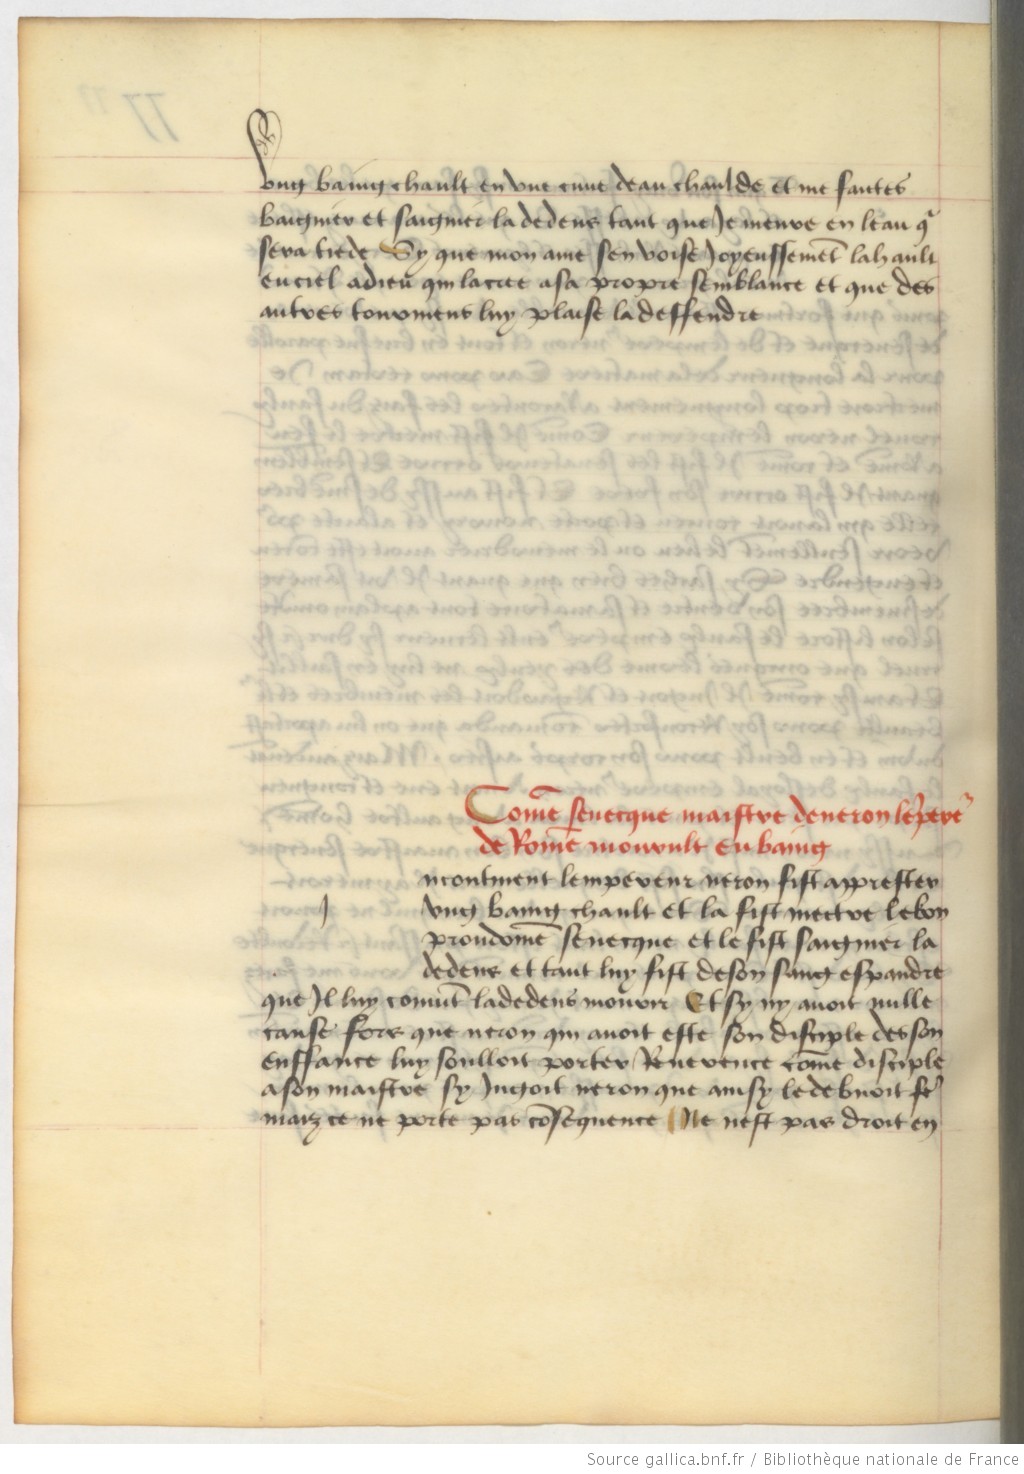 ung baing chault en une cuve deau chaulde et me faictes
baignier et saignier la dedens tant que Je meure en leau q̃
sera tiede Sy que mon ame sen voise Joyeussemẽt lahault
en ciel a dieu qui la cree a sa propre semblance et que des
autres tourmens luy plaise la deffendre
Com̃e senecque maistre de neron lẽpereʳ
de Rom̃e mourult en baing
ncontinent lempereur neron fist apprester
J
ung baing chault et la fist mectre le bon
proudom̃e senecque et le fist saignier la
dedens et tant luy fist de son sang espandre
que Jl luy convĩt la dedens mourir Et sy ny avoit nulle
cause fors que neron qui avoit este son disciple des son
enffance luy soulloit porter Reverence com̃e disciple
a son maistre sy Jugoit neron que ainsy le debvoit fẽ
maiz ce ne porte pas cõsequence Ne nest pas droit en
Source gallica.bnf.fr / Bibliothèque nationale de France